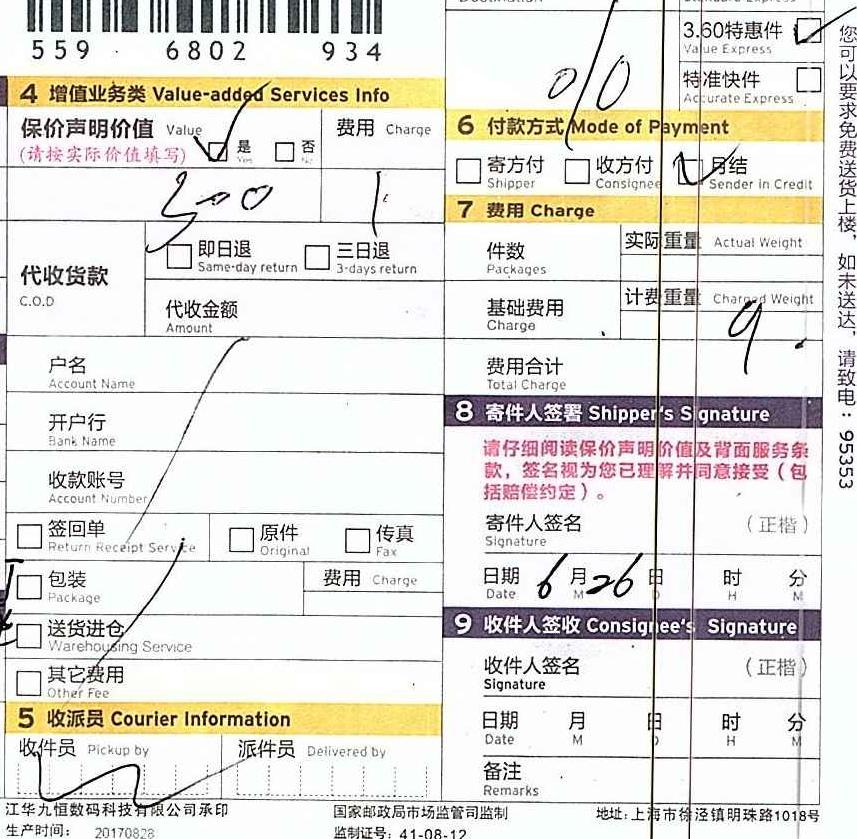 559 6802 934
4 增值业务类 Value-added Services Info
保价声明价值 Value
(请按实际价值填写)
是 Yes
否 No
费用 Charge
300
1
代收货款
C.O.D
即日退
Same-day return
三日退
3-days return
代收金额
Amount
户名
Account Name
开户行
Bank Name
收款账号
Account Number
签回单
Return Receipt Service
原件
Original
传真
Fax
包装
Package
费用 Charge
送货进仓
Warehousing Service
其它费用
Other Fee
5 收派员 Courier Information
收件员 Pickup by
派件员 Delivered by
3.60特惠件
Value Express
特准快件
Accurate Express
6 付款方式 Mode of Payment
寄方付
Shipper
收方付
Consignee
月结
Sender in Credit
7 费用 Charge
件数
Packages
实际重量 Actual Weight
基础费用
Charge
计费重量 Charged Weight
9
费用合计
Total Charge
8 寄件人签署 Shipper's Signature
请仔细阅读保价声明价值及背面服务条
款，签名视为您已理解并同意接受（包
括赔偿约定）。
寄件人签名 （正楷）
Signature
日期 6 月 26 日 时 分
Date M D H M
9 收件人签收 Consignee's Signature
收件人签名 （正楷）
Signature
日期 月 日 时 分
Date M D H M
备注
Remarks
您可以要求免费送货上楼，如未送达，请致电：95353
江华九恒数码科技有限公司承印
生产时间： 20170828
国家邮政局市场监管司监制
监制证号：41-08-12
地址：上海市徐泾镇明珠路1018号